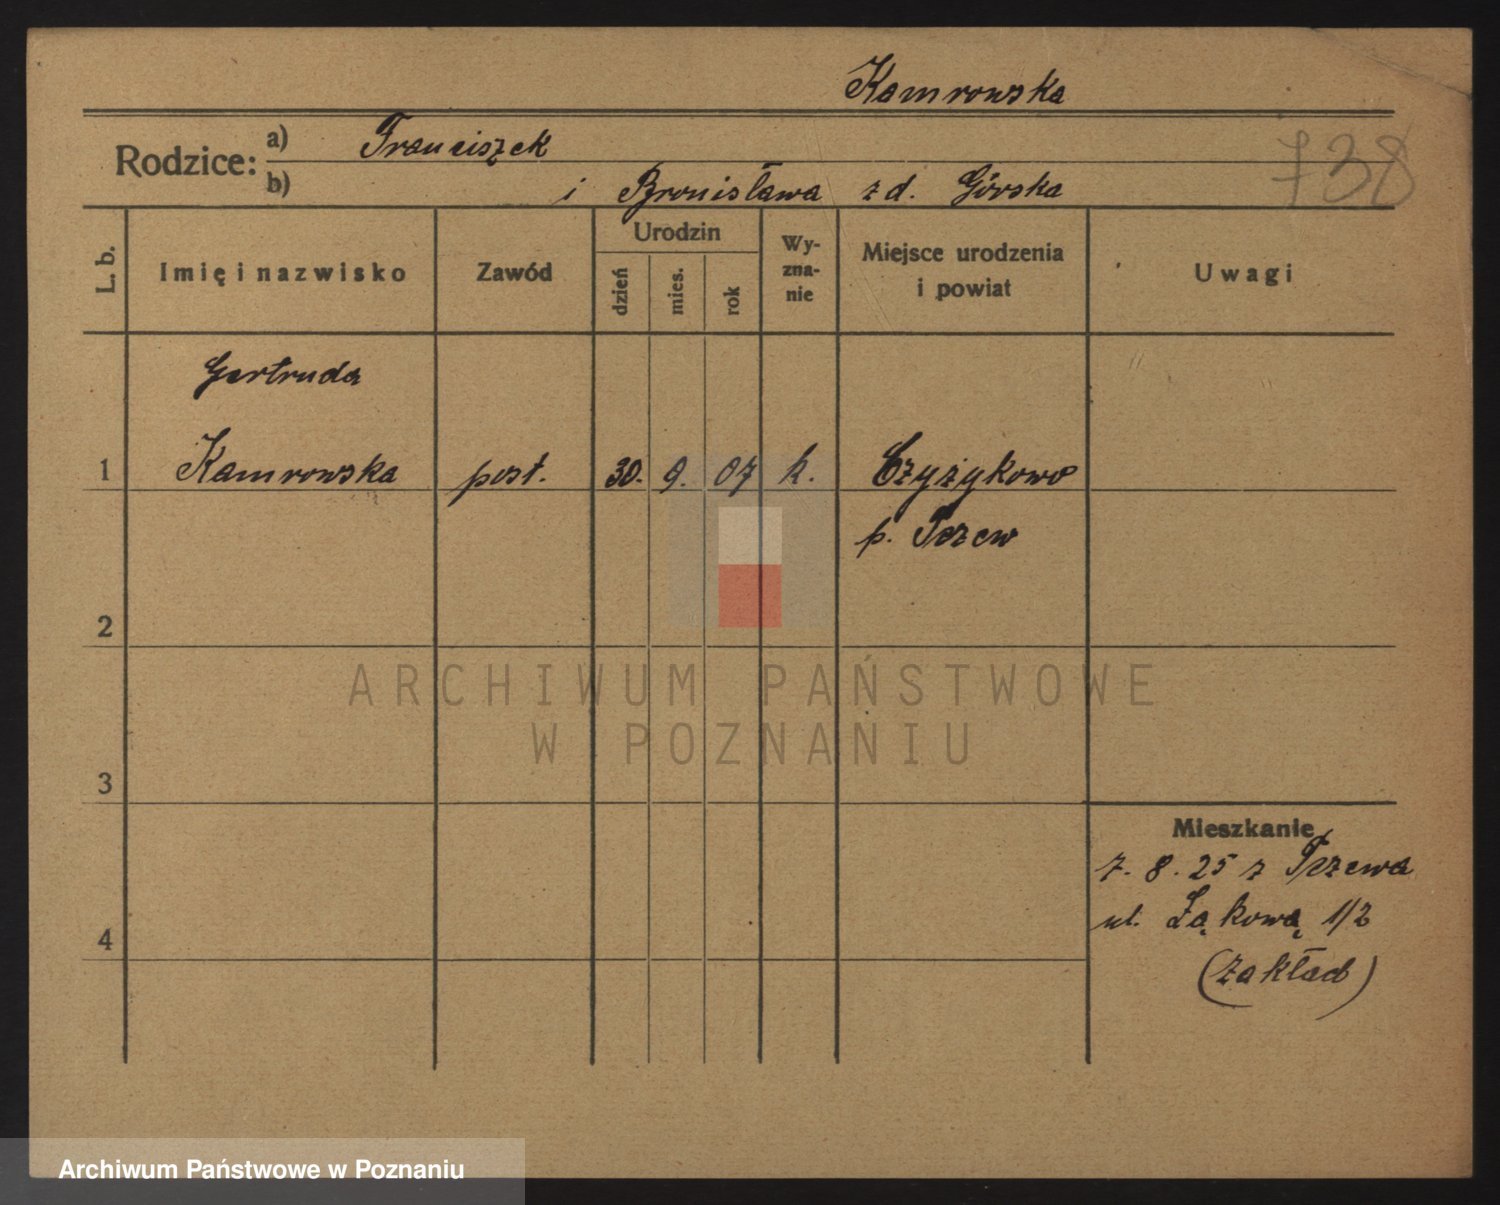 Kamrowska
Rodzice:
a) Franciszek
b) i Bronisława zd. Górska
738
L. b.
Imię i nazwisko
Zawód
Urodzin
dzień
mies.
rok
Wy-
zna-
nie
Miejsce urodzenia
i powiat
Uwagi
Gertruda
1 Kamrowska post. 30. 9. 07 k. Czyżykowo
p. Tczew
2
3
4
Mieszkanie
7. 8. 25 z Tczewa
ul. Łąkową 1/2
(zakład)
ARCHIWUM PAŃSTWOWE
W POZNANIU
Archiwum Państwowe w Poznaniu